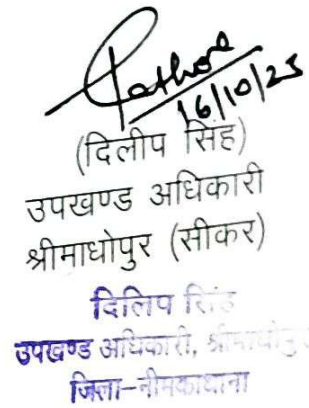 Rathore
16/10/25
(दिलीप सिंह)
उपखण्ड अधिकारी
श्रीमाधोपुर (सीकर)
दिलिप सिंह
उपखण्ड अधिकारी, श्रीमाधोपुर
जिला-नीमकाथाना